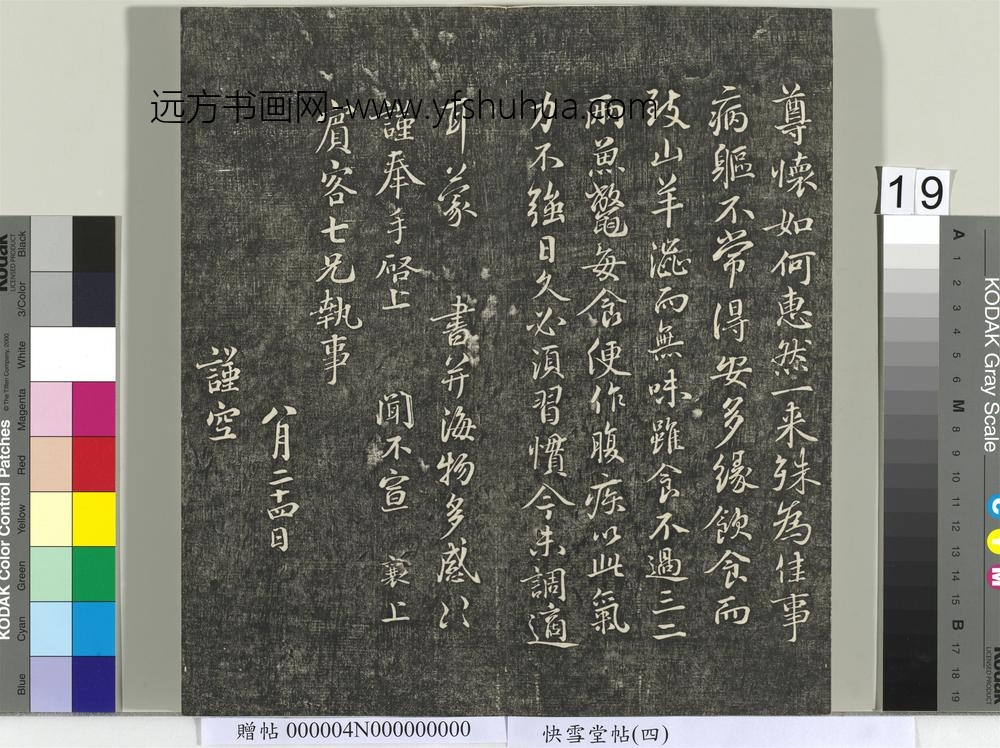 尊懷如何惠然一来殊為佳事
病軀不常得安多緣飲食而
致山羊滋而無味雖食不過三二
兩魚鱉每食便作腹疾以此氣
力不強日久必須習慣今未調適
耳蒙 書并海物多感〻
謹奉手啓上 聞不宣 襄上
賓客七兄執事
八月二十四日
謹空
远方书画网-www.yfshuhua.com
19
贈帖 000004N000000000
快雪堂帖(四)
KODAK Color Control Patches
© The Tiffen Company, 2000
Kodak
LICENSED PRODUCT
Blue
Cyan
Green
Yellow
Red
Magenta
White
3/Color
Black
KODAK Gray Scale
A 1 2 3 4 5 6 M 8 9 10 11 12 13 14 15 B 17 18 19
C
Y
M